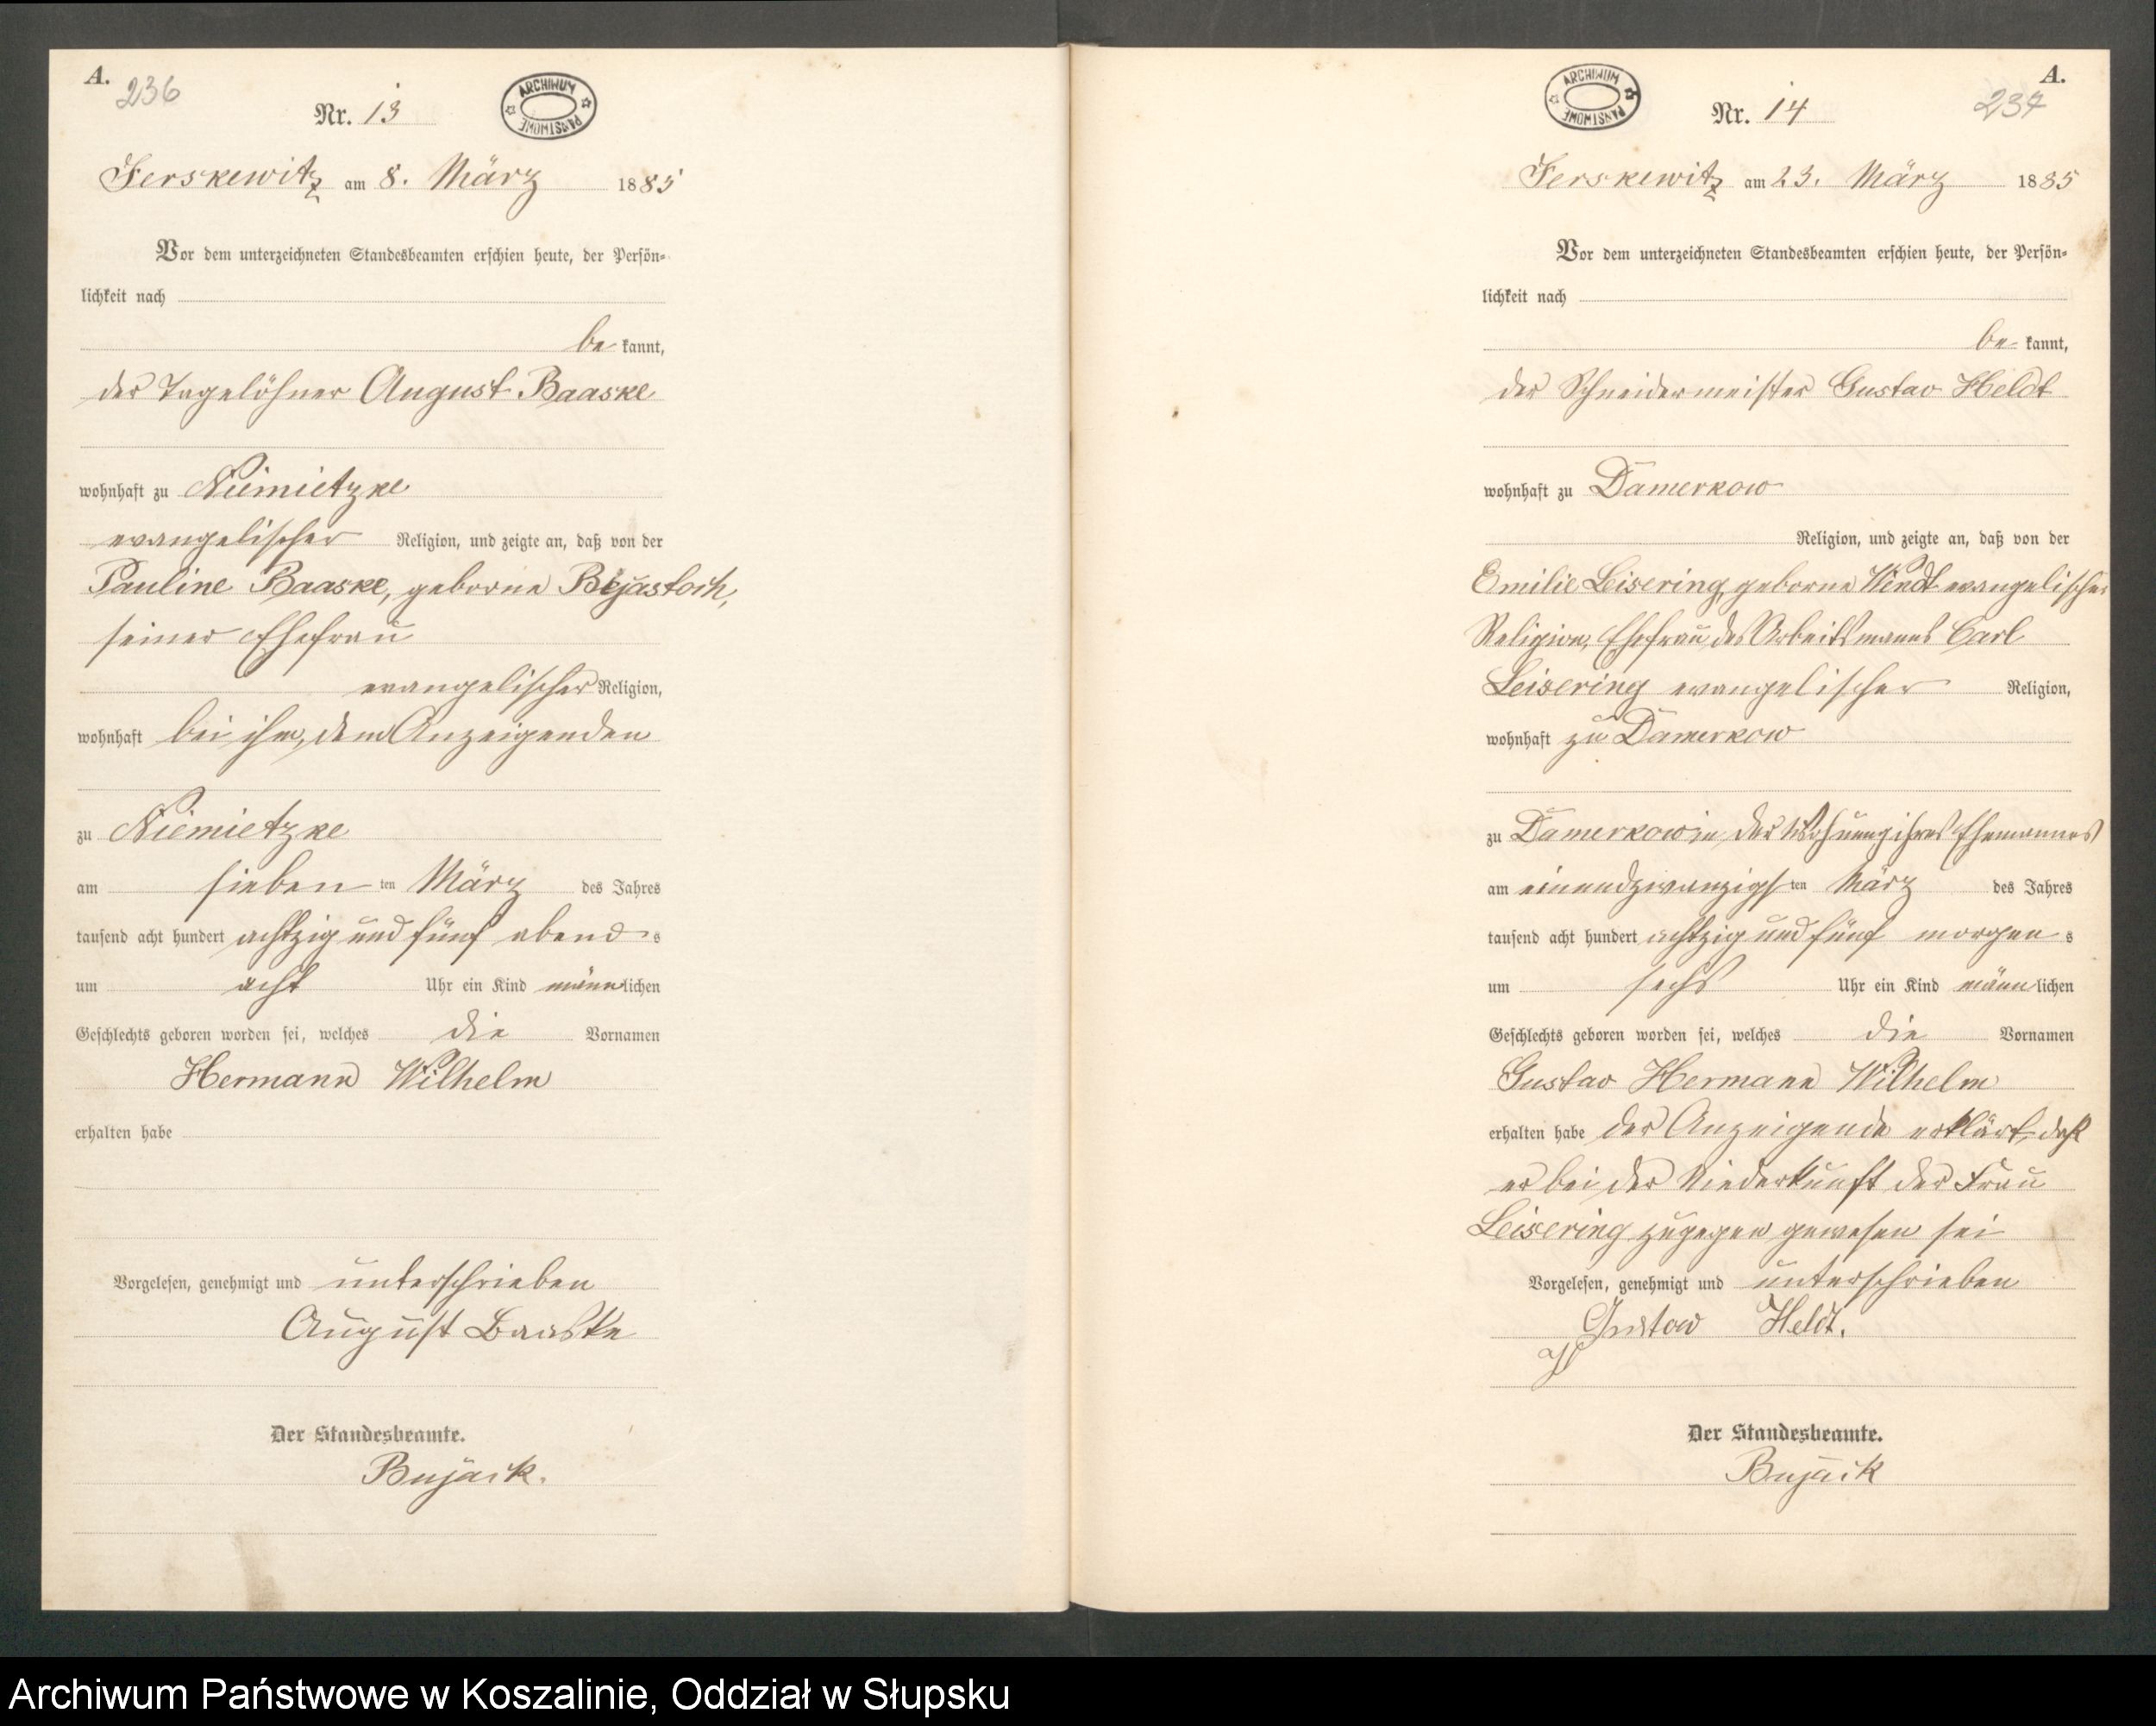 A.
236
Nr. 13
ARCHIWUM PAŃSTWOWE
Jerskewitz am 8. März 1885
Vor dem unterzeichneten Standesbeamten erschien heute, der Persön-
lichkeit nach
be kannt,
der Tagelöhner August Baaske
wohnhaft zu Niemietzke
evangelischer Religion, und zeigte an, daß von der
Pauline Baaske, geborne
seiner Ehefrau
evangelischer Religion,
wohnhaft bei ihm, dem Anzeigenden
zu Niemietzke
am sieben ten März des Jahres
tausend acht hundert achtzig und fünf abend s
um acht Uhr ein Kind männlichen
Geschlechts geboren worden sei, welches die Vornamen
Hermann Wilhelm
erhalten habe
Vorgelesen, genehmigt und unterschrieben
August Baaske
Der Standesbeamte.
Bujack.
A.
237
Nr. 14
ARCHIWUM PAŃSTWOWE
Jerskewitz am 23. März 1885
Vor dem unterzeichneten Standesbeamten erschien heute, der Persön-
lichkeit nach
be kannt,
der Schneidermeister Gustav Heldt
wohnhaft zu Damerkow
Religion, und zeigte an, daß von der
Emilie Leisering, geborne Windt evangelischer
Religion, Ehefrau des Arbeitsmanns Carl
Leisering evangelischer Religion,
wohnhaft zu Damerkow
zu Damerkow in der Wohnung ihres Ehemannes
am einundzwanzigsten März des Jahres
tausend acht hundert achtzig und fünf morgen s
um sechs Uhr ein Kind männlichen
Geschlechts geboren worden sei, welches die Vornamen
Gustav Hermann Wilhelm
erhalten habe der Anzeigende erklärt, daß
er bei der Niederkunft der Frau
Leisering zugegen gewesen sei
Vorgelesen, genehmigt und unterschrieben
Gustaw Heldt.
Der Standesbeamte.
Bujack
Archiwum Państwowe w Koszalinie, Oddział w Słupsku